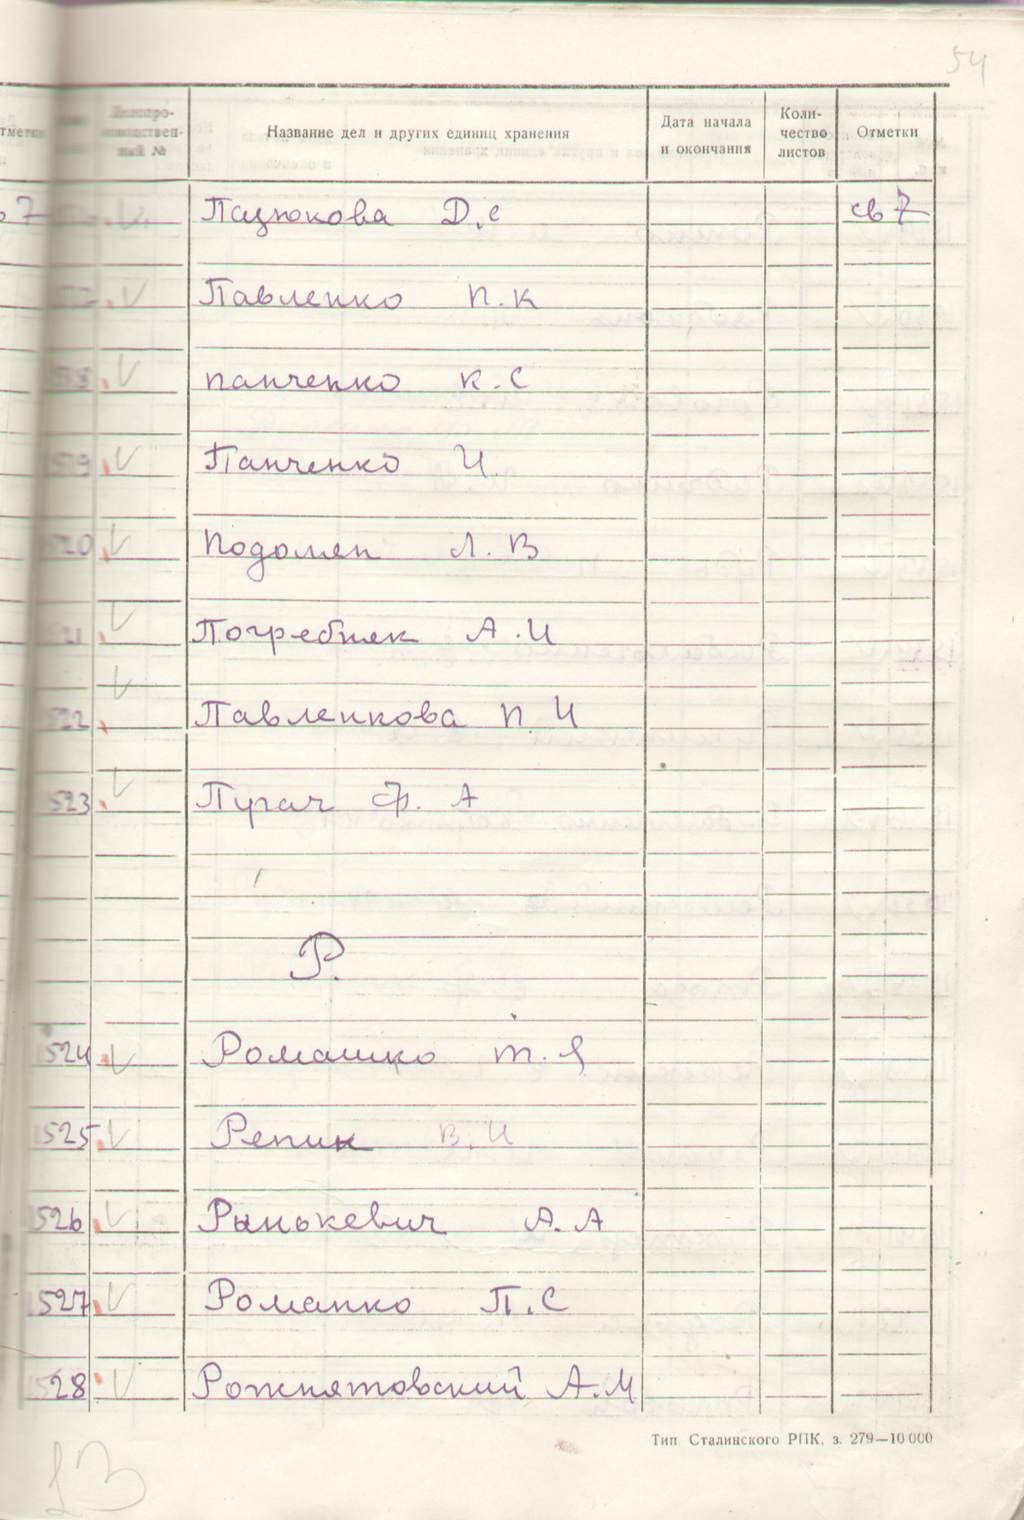 54
Делопро-
изводствен-
ный №
Название дел и других единиц хранения
Дата начала
и окончания
Коли-
чество
листов
Отметки
Пазюкова Д.С св 7
Павленко П.К
1518 Панченко К.С
1519 Панченко И.
1520 Подомен Л.В
1521 Погребняк А.И
1522 Павленкова П И
1523 Пугач Ф.А
Р.
1524 Ромашко Т.Я
1525 Репик В.И
1526 Рынькевич А.А
1527 Романко П.С
1528 Рожнятовский А.М
Тип. Сталинского РПК, з. 279—10 000
13